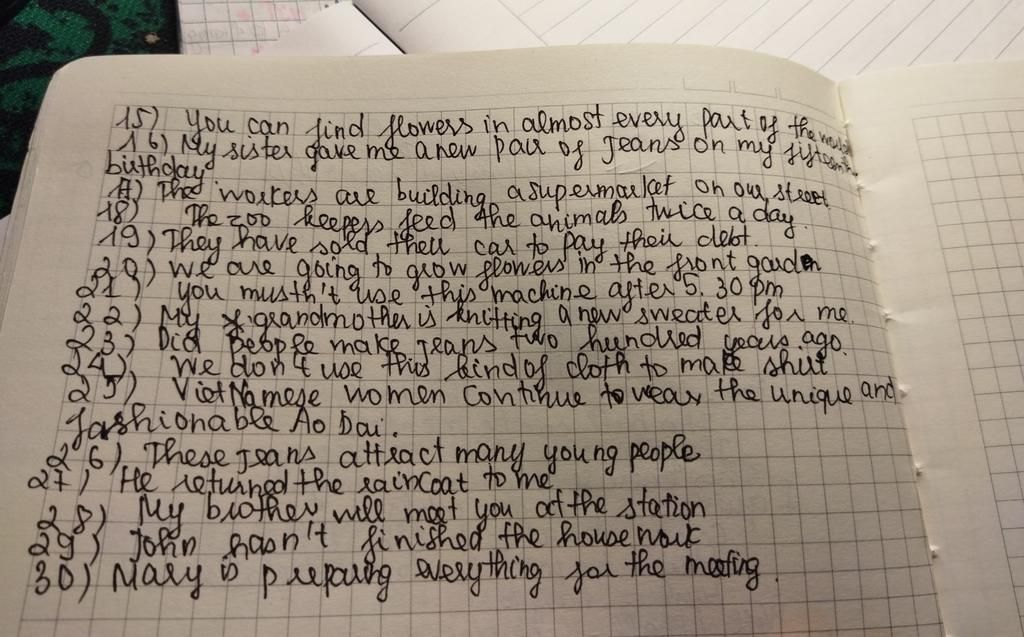 15) You can find flowers in almost every part of the world
16) My sister gave me a new pair of Jeans on my fifteenth
birthday
17) The workers are building a supermarket on our street
18) The zoo keepers feed the animals twice a day.
19) They have sold their car to pay their debt.
20) We are going to grow flowers in the front garden
21) you musth't use this machine after 5.30 pm
22) My grandmother is knitting a new sweater for me.
23) Did People make jeans two hundred years ago.
24) We don't use this kind of cloth to make shirt
25) VietNamese women continue to wear the unique and
fashionable Ao Dai.
26) These jeans attract many young people
27) He returned the raincoat to me
28) My brother will meet you at the station
29) John hasn't finished the housework
30) Mary is preparing everything for the meeting.